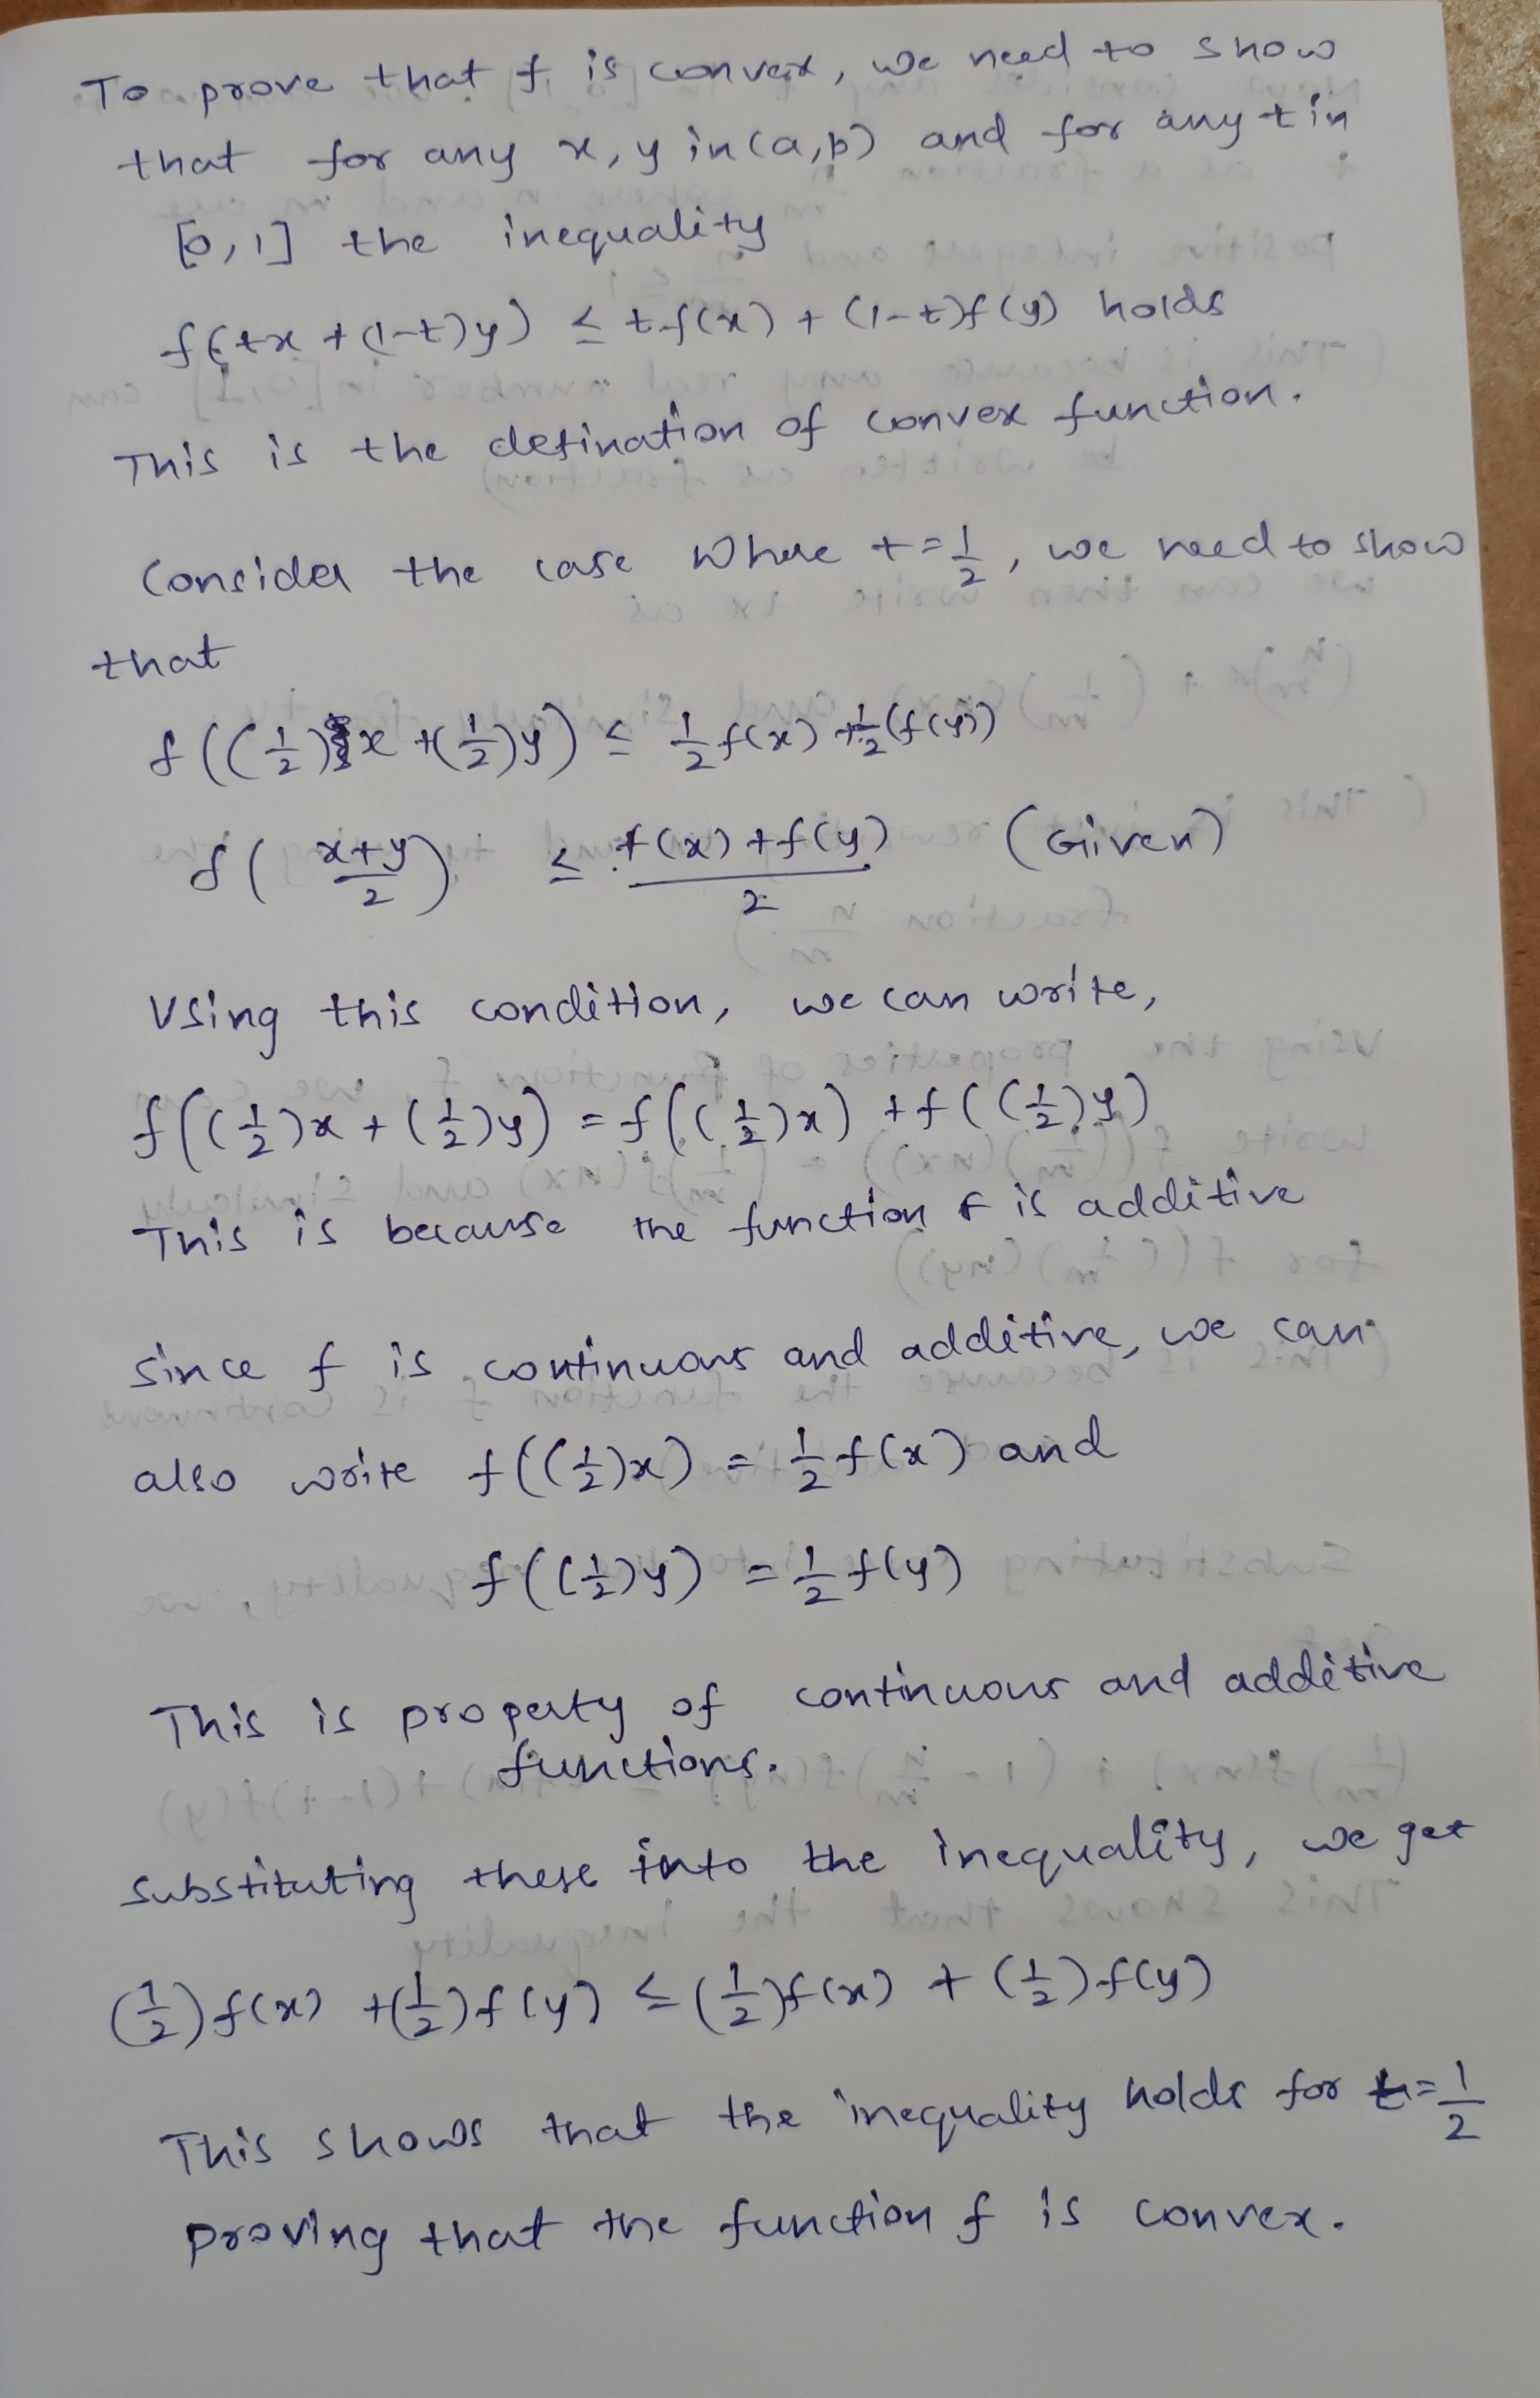 To prove that f is convex, we need to show
that for any x, y in (a,b) and for any t in
[0,1] the inequality
f(tx + (1-t)y) ≤ t f(x) + (1-t)f(y) holds
This is the defination of convex function.
Consider the case where t = 1/2, we need to show
that
f((1/2)x + (1/2)y) ≤ 1/2 f(x) + 1/2 (f(y))
f( (x+y)/2 ) ≤ (f(x) + f(y))/2 (Given)
Using this condition, we can write,
f((1/2)x + (1/2)y) = f((1/2)x) + f((1/2)y)
This is because the function f is additive
since f is continuous and additive, we can
also write f((1/2)x) = 1/2 f(x) and
f((1/2)y) = 1/2 f(y)
This is property of continuous and additive
functions.
substituting these into the inequality, we get
(1/2)f(x) + (1/2)f(y) ≤ (1/2)f(x) + (1/2)f(y)
This shows that the inequality holds for t = 1/2
proving that the function f is convex.